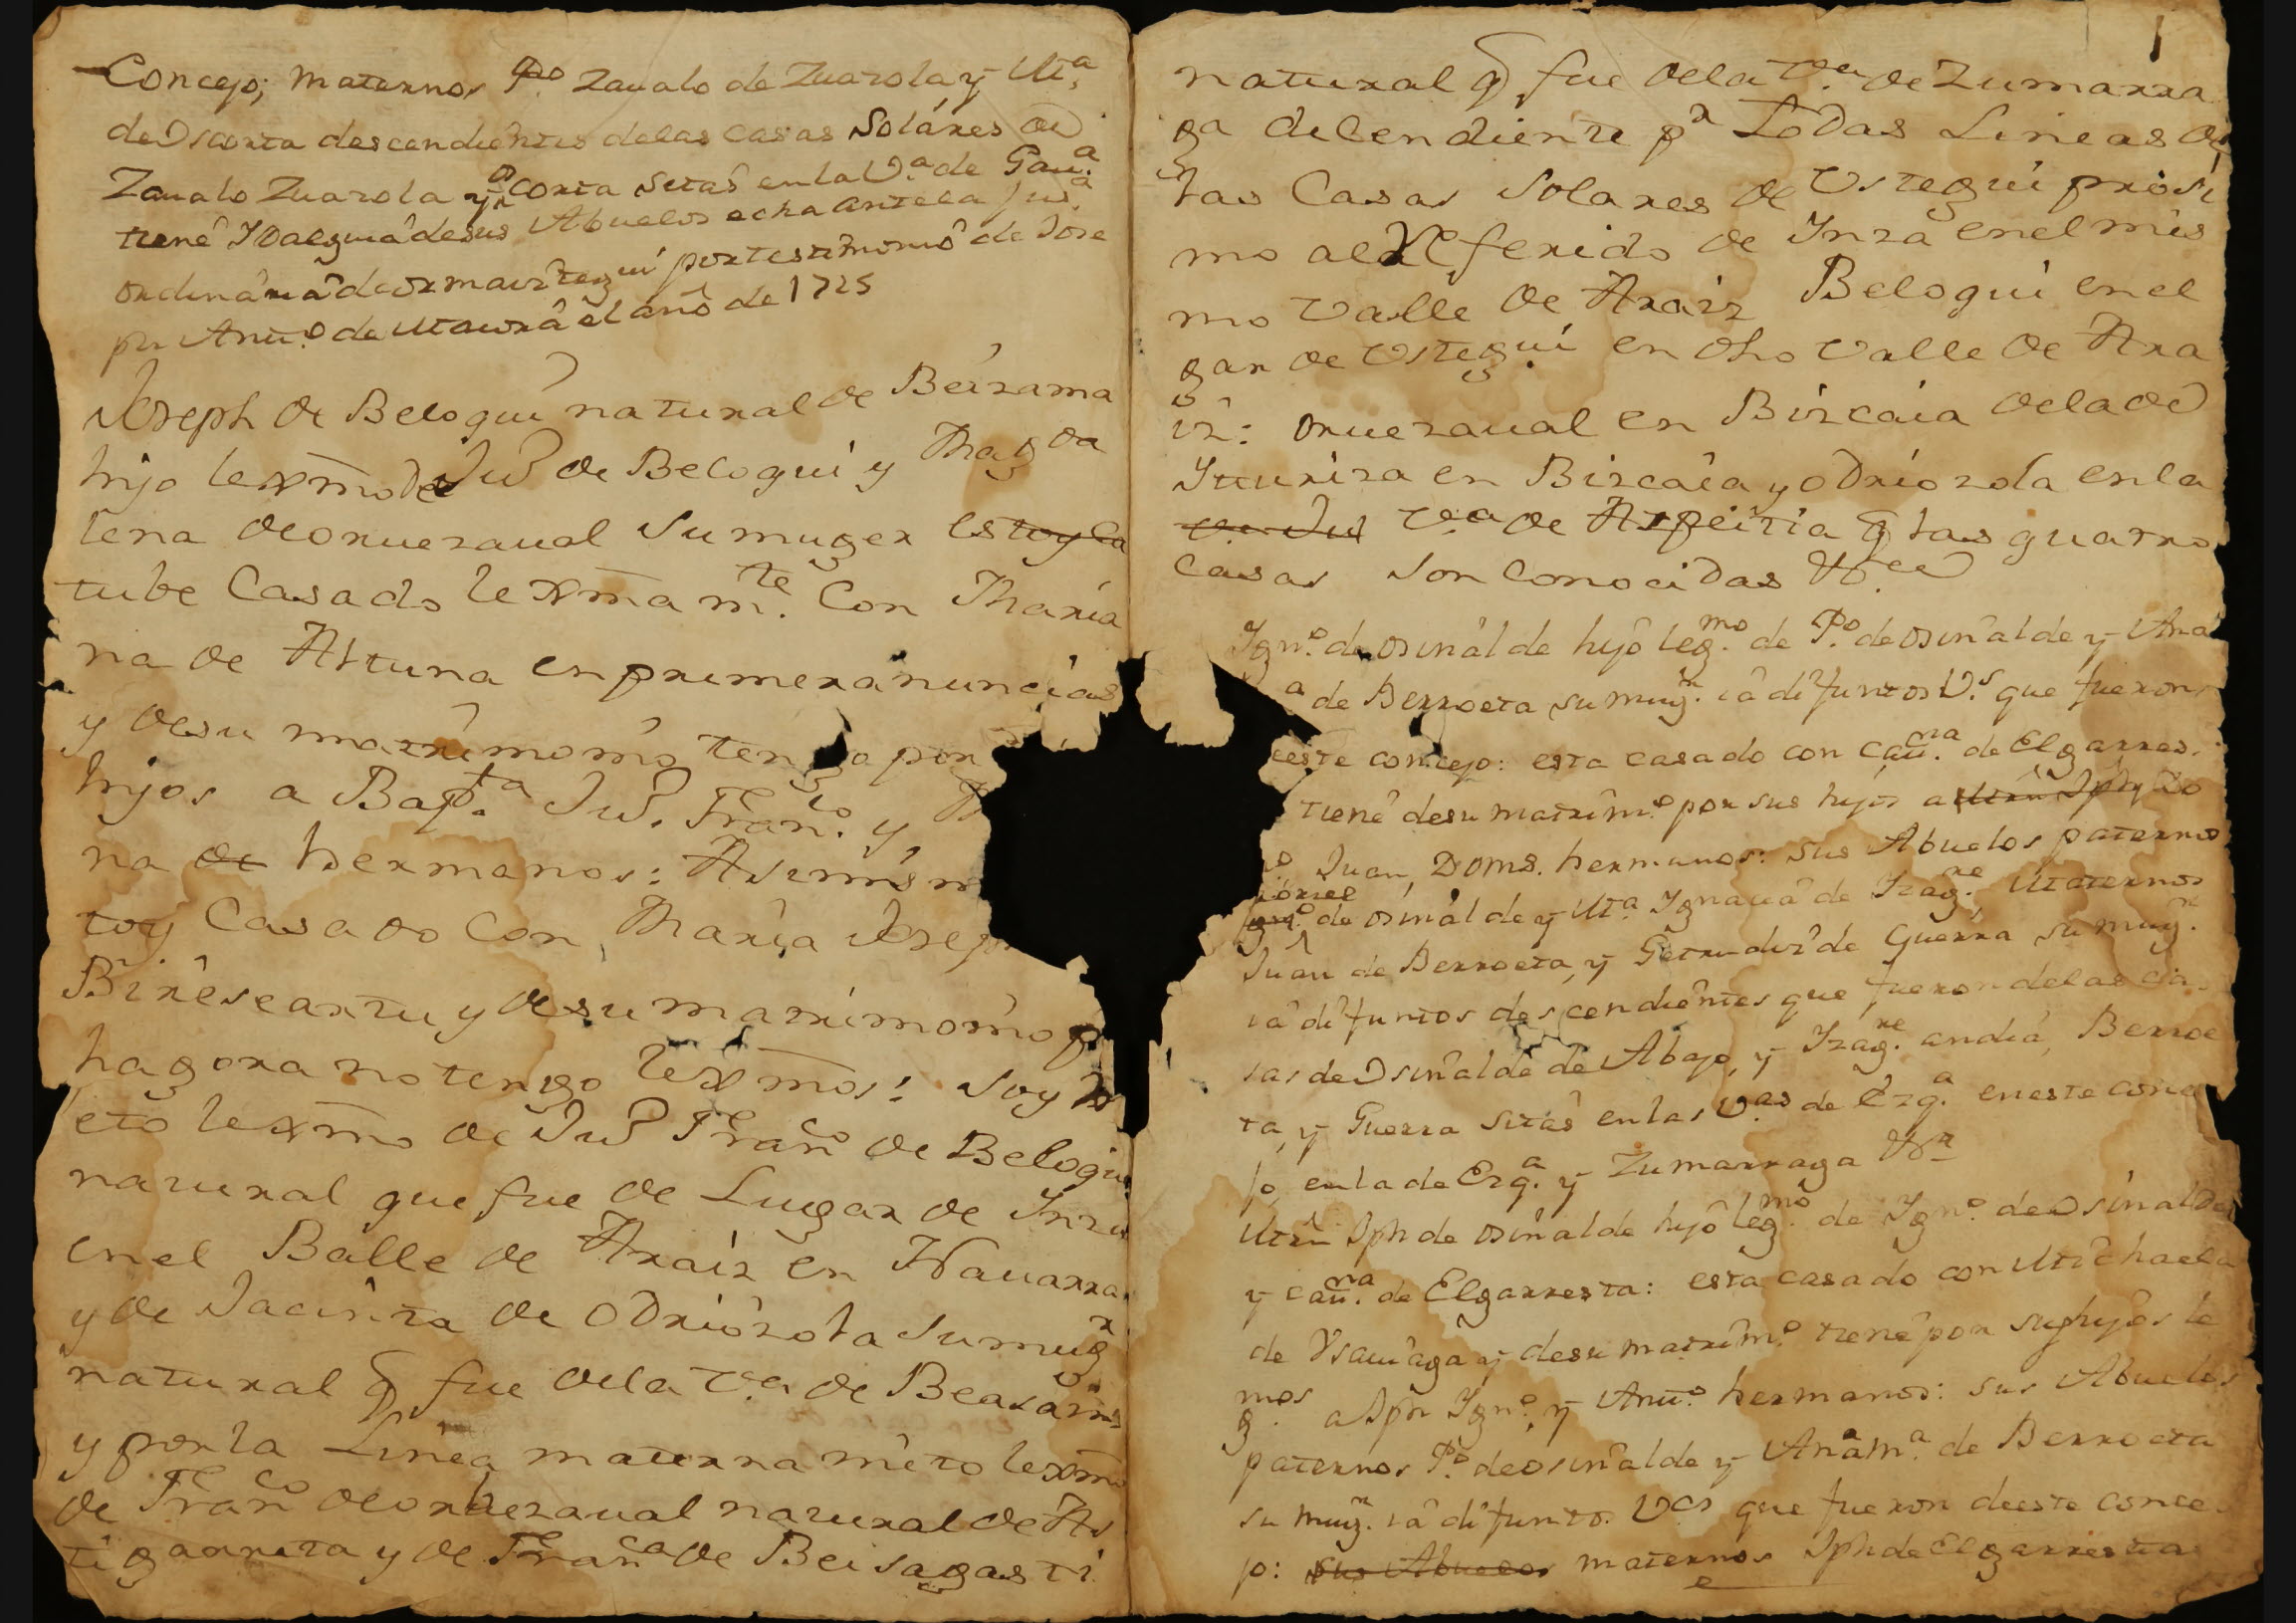 Concejo; maternos P.º Zaualo de Zuazola y M.ª
de Oscorta descendientes delas Casas Soláres de
Zaualo Zuazola y Oscorta sitas enla V.ª de Gau.ª
tiene Idalguia desus Abuelos echa antela Jus.ª
ordinaria de Ormaiztegui por testimonio de Jose
pn Antt.º de Maurâ el año de 1725
Joseph de Belogui natural de Beizama
hijo lexmo de Juº de Belogui y Magda
lena de oruezaual su muger estoy ca
tube Casado lexmam.te Con Maria
na de Altuna en primeras nuncias
y desu matrimonio tengo por
hijos a Bap.ta Juº. Fran.co y
na de hermanos: Asimism
toy Casado Con Maria Josep
Bireseartu y desu matrimonio p
hagora no tengo lexmos: Soy
eto lexmo de Juº Franco de Belogui
natural que fue de Lugar de Inza
en el Balle de Araiz en Nauarra
y de Jacinta de Odriózola su mugr
natural q fue dela V.ª de Beasain
y por la Linea materna nieto lexmo
de Franco de oruezaual natural de As
tigarreta y de Franca de Beisagasti
1
natural q fue dela V.ª de Zumarra
ga decendiente pr Todas Lineas de
las Casas Solares de Ustegui prosi
mo al Referido de Inza en el mis
mo Valle de Araiz Belogui en el
gar de Ustegui en dho Valle de Ara
iz: oruezaual en Bizcaia dela de
Yturriza en Bizcaia y Odriozola en la
V.ª de Juº V.ª de Azpeitia q las quatro
Casas son Conocidas &.ce
Ygn.º de osinalde hijo leg.mo de P.º de osinalde y Ana
ª de Berroeta su mug.r ia difuntos V.s que fueron
eeste concejo: esta casado con Catt.na de Elgarres
tiene desu matrim.º por sus hijos a Mrn Jph y Do
º Juan, Doms. hermanos: sus Abuelos paternos
Ygn.º de osinalde y M.ª Ygnacia de Izag.re Maternos
Juan de Berroeta, y Getrudiz de Guerra su mug.r
ia difuntos descendientes que fueron delas ca
sas de Osinalde de Abajo, y Izag.re andia, Berroe
ta, y Guerra sitas en las V.as de Ezq.ª en este conce
jo, en la de Ezq.ª y Zumarraga &.ª
Mrn Jph de osinalde hijo leg.mo de Ygn.º de Osinalde
y Catt.na de Elgarresta: esta casado con Michaela
de Ysauiaga y desu matrim.º tiene por sus hijos le
g.mos a Jph Ygn.º, y Antt.º hermanos: sus Abuelos
paternos P.º de osinalde y Ana M.ª de Berroeta
su mug.r ia difunto. V.es que fueron deeste conce
jo: sus Abuelos maternos Jph de Elgarresta